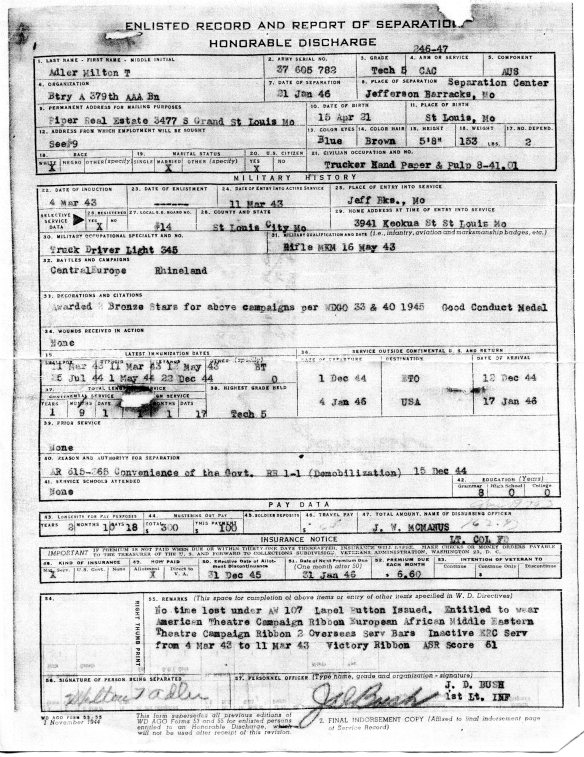 ENLISTED RECORD AND REPORT OF SEPARATION
HONORABLE DISCHARGE
246-47
1. LAST NAME - FIRST NAME - MIDDLE INITIAL 2. ARMY SERIAL NO. 3. GRADE 4. ARM OR SERVICE 5. COMPONENT
Adler Milton T 37 605 782 Tech 5 CAC AUS
6. ORGANIZATION 7. DATE OF SEPARATION 8. PLACE OF SEPARATION Separation Center
Btry A 379th AAA Bn 21 Jan 46 Jefferson Barracks, Mo
9. PERMANENT ADDRESS FOR MAILING PURPOSES 10. DATE OF BIRTH 11. PLACE OF BIRTH
Piper Real Estate 3477 S Grand St Louis Mo 15 Apr 21 St Louis, Mo
12. ADDRESS FROM WHICH EMPLOYMENT WILL BE SOUGHT 13. COLOR EYES 14. COLOR HAIR 15. HEIGHT 16. WEIGHT 17. NO. DEPEND.
See#9 Blue Brown 5'8" 153 LBS. 2
18. RACE 19. MARITAL STATUS 20. U.S. CITIZEN 21. CIVILIAN OCCUPATION AND NO.
WHITE NEGRO OTHER (specify) SINGLE MARRIED OTHER (specify) YES NO
X X X Trucker Hand Paper & Pulp 8-41.01
MILITARY HISTORY
22. DATE OF INDUCTION 23. DATE OF ENLISTMENT 24. DATE OF ENTRY INTO ACTIVE SERVICE 25. PLACE OF ENTRY INTO SERVICE
4 Mar 43 ----- 11 Mar 43 Jeff Bks., Mo
SELECTIVE SERVICE DATA 26. REGISTERED YES NO 27. LOCAL S.S. BOARD NO. 28. COUNTY AND STATE 29. HOME ADDRESS AT TIME OF ENTRY INTO SERVICE
X #14 St Louis City Mo 3941 Keokua St St Louis Mo
30. MILITARY OCCUPATIONAL SPECIALTY AND NO. 31. MILITARY QUALIFICATION AND DATE (i.e., infantry, aviation and marksmanship badges, etc.)
Truck Driver Light 345 Rifle MKM 16 May 43
32. BATTLES AND CAMPAIGNS
CentralEurope Rhineland
33. DECORATIONS AND CITATIONS
Awarded 2 Bronze Stars for above campaigns per WDGO 33 & 40 1945 Good Conduct Medal
34. WOUNDS RECEIVED IN ACTION
None
35. LATEST IMMUNIZATION DATES 36. SERVICE OUTSIDE CONTINENTAL U.S. AND RETURN
DATE OF DEPARTURE DESTINATION DATE OF ARRIVAL
11 Mar 43 11 Mar 43 May 43 BT
Jul 44 1 May 44 22 Dec 44 0 1 Dec 44 ETO 12 Dec 44
37. TOTAL LENGTH OF SERVICE 38. HIGHEST GRADE HELD
YEARS MONTHS DAYS MONTHS DAYS 4 Jan 46 USA 17 Jan 46
1 9 1 1 1 17 Tech 5
39. PRIOR SERVICE
None
40. REASON AND AUTHORITY FOR SEPARATION
AR 615-365 Convenience of the Govt. RR 1-1 (Demobilization) 15 Dec 44
41. SERVICE SCHOOLS ATTENDED 42. EDUCATION (Years)
Grammar High School College
None 8 0 0
PAY DATA
43. LONGEVITY FOR PAY PURPOSES 44. MUSTERING OUT PAY 45. SOLDIER DEPOSITS 46. TRAVEL PAY 47. TOTAL AMOUNT, NAME OF DISBURSING OFFICER
YEARS MONTHS DAYS TOTAL THIS PAYMENT
10 18 $300 $100 J. W. MCMANUS
INSURANCE NOTICE LT. COL FD
IMPORTANT IF PREMIUM IS NOT PAID WHEN DUE OR WITHIN THIRTY-ONE DAYS THEREAFTER, INSURANCE WILL LAPSE. MAKE CHECKS OR MONEY ORDERS PAYABLE
TO THE TREASURER OF THE U. S. AND FORWARD TO COLLECTIONS SUBDIVISION, VETERANS ADMINISTRATION, WASHINGTON 25, D. C.
48. KIND OF INSURANCE 49. HOW PAID 50. Effective Date of Allotment Discontinuance 51. Date of Next Premium Due (One month after 50) 52. PREMIUM DUE EACH MONTH 53. INTENTION OF VETERAN TO
Nat. Serv. U.S. Govt. None Allotment Direct to V. A. Continue Continue Only Discontinue
X 31 Dec 45 31 Jan 46 $ 6.60 $
54. 55. REMARKS (This space for completion of above items or entry of other items specified in W. D. Directives)
RIGHT THUMB PRINT
No time lost under AW 107 Lapel Button Issued. Entitled to wear
American Theatre Campaign Ribbon European African Middle Eastern
Theatre Campaign Ribbon 2 Overseas Serv Bars Inactive ERC Serv
from 4 Mar 43 to 11 Mar 43 Victory Ribbon ASR Score 61
56. SIGNATURE OF PERSON BEING SEPARATED 57. PERSONNEL OFFICER (Type name, grade and organization - signature)
Milton T Adler J D Bush J. D. BUSH
1st Lt. INF
WD AGO FORM 53-55
1 November 1944
This form supersedes all previous editions of
WD AGO Forms 53 and 55 for enlisted persons
entitled to an Honorable Discharge, which
will not be used after receipt of this revision.
2. FINAL INDORSEMENT COPY (Affixed to final indorsement page
of Service Record)